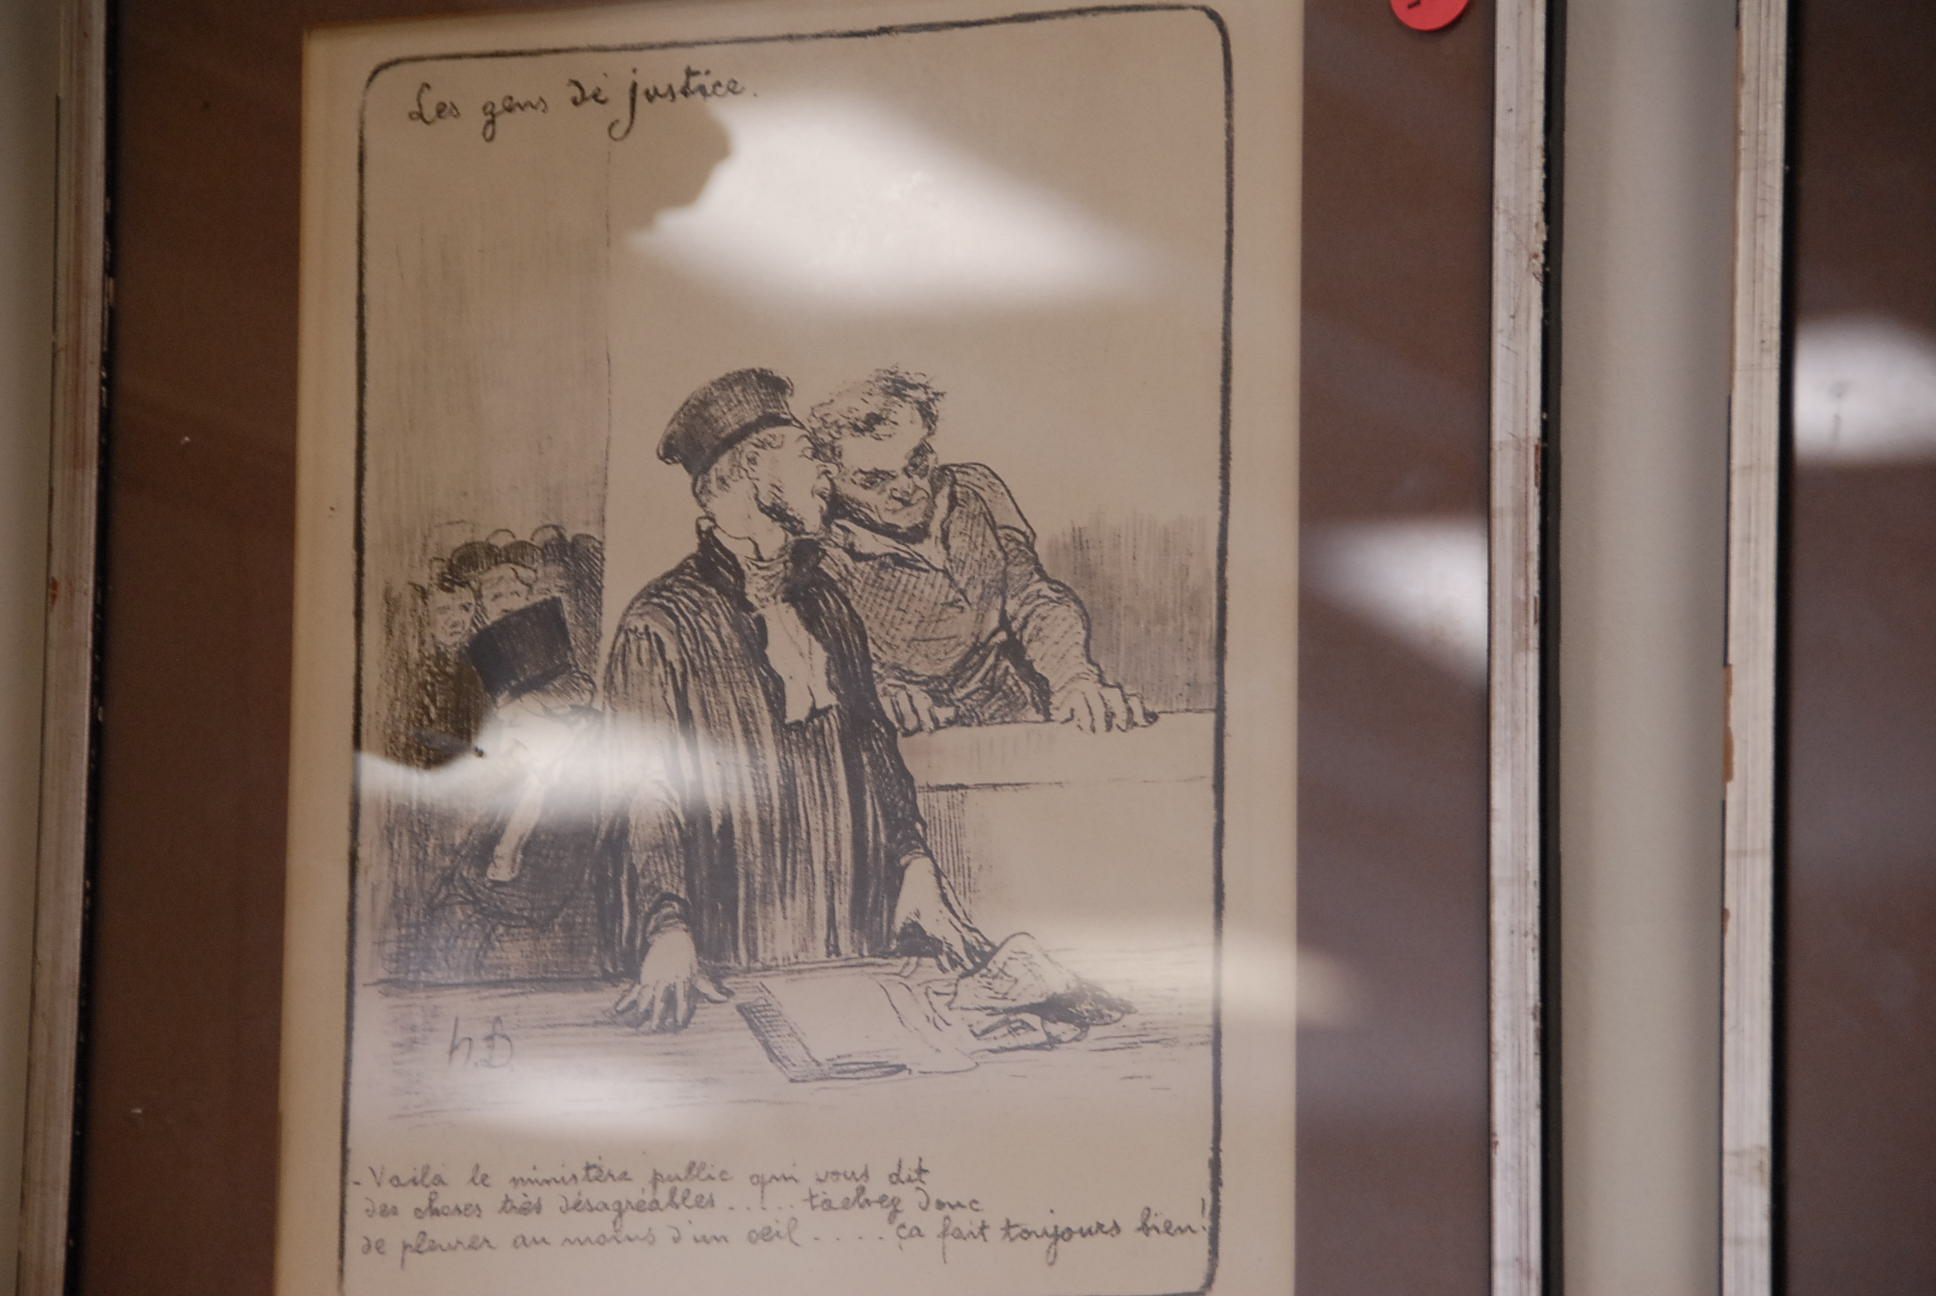 Les gens de justice.
h.D.
- Voilà le ministère public qui vous dit
des choses très désagréables..... tachez donc
de pleurer au moins d'un oeil..... ça fait toujours bien!